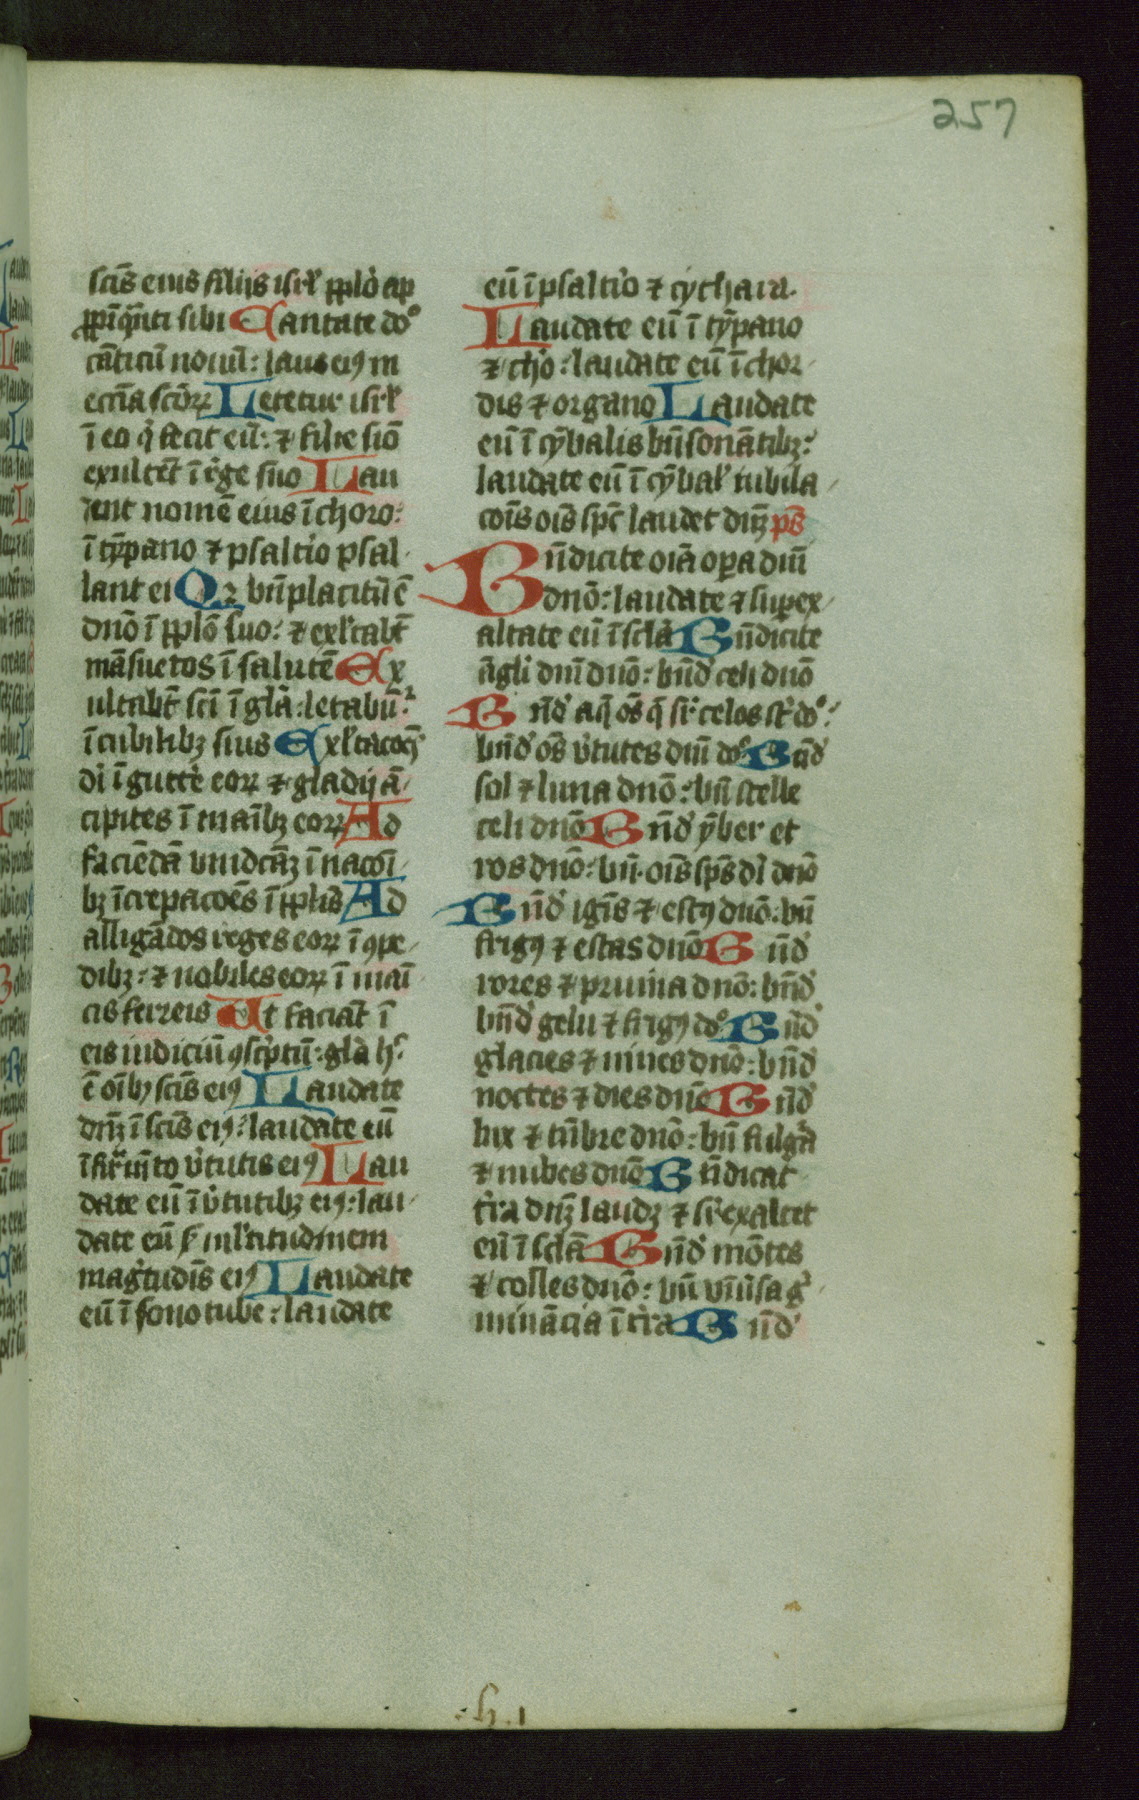 257
scīs eius filiis isrl' pplo ap
ppīq̄nti sibi Cantate do°
cāticū nouū: laus eiꝯ in
eccīa scōꝝ Letetur isrl'
ī eo q' fecit eū: ⁊ filie sion
exultēt ī rege suo Lau
dent nomē eius ī choro:
ī tȳpano ⁊ psaltio psal
lant ei Qꝛ bn̄placitū ē
dnō ī pplo suo: ⁊ exl'tabt
māsuetos ī salutē Ex
ultabt sci ī gl'a: letabūt'
ī cubilibꝫ suis Exl'tacōes
di ī guttē eoꝝ ⁊ gladij ā
cipites ī manibꝫ eoꝝ Ad
faciēdā vindcāꝫ ī nacōi
bꝫ īcrepacōes ī pplis Ad
alligādos reges eoꝝ ī ꝯpe
dibꝫ: ⁊ nobiles eoꝝ ī mai
cis ferreis Ut faciāt ī
eis iudiciū ꝯscptū: gl'a h̄
ē oībꝫ scīs eiꝯ Laudate
dnꝫ ī scīs eiꝯ: laudate eū
ī firmnto v'tutis eiꝯ Lau
date eū ī v'tutibꝫ eiꝯ: lau
date eū ꝓ ml'titudinem
mag'tudīs eiꝯ Laudate
eū ī sono tube: laudate
eū ī psaltio ⁊ cythara.
Laudate eū ī tȳpano
⁊ choro: laudate eū ī chor
dis ⁊ organo Laudate
eū ī cȳbalis bn̄sonātibꝫ:
laudate eū ī cȳbal' iubila
cōis oīs spc laudet dnꝫ ps
Bn̄dicite oīa oꝑa dnī
dnō: laudate ⁊ suꝑex
altate eū ī scl'a Bn̄dicite
āgli dnī dnō: bn̄d' celi dnō
Bn̄d' aq̄ oēs q̄ sr̄ celos st' do°:
bn̄d' oēs v'tutes dnī do° Bn̄d'
sol ⁊ luna dnō: bn̄ stelle
celi dnō Bn̄d' ȳber et
ros dnō: bn̄. oīs spūs di dnō
Bn̄d' ignīs ⁊ estꝯ dnō: bn̄
frigꝯ ⁊ estas dnō Bn̄d'
rores ⁊ pruina dnō: bn̄d'
bn̄d' gelu ⁊ frigꝯ do° Bn̄d'
glacies ⁊ niues dnō: bn̄d'
noctes ⁊ dies dnō Bn̄d'
lux ⁊ tn̄bre dnō: bn̄ fulg'a
⁊ nubes dnō Bn̄dicat
t'ra dnꝫ laudꝫ ⁊ sr̄exaltet
eū ī sclā Bn̄d' mōtes
⁊ colles dnō: bn̄ vniūsa g'
minācia ī t'ra Bn̄d'